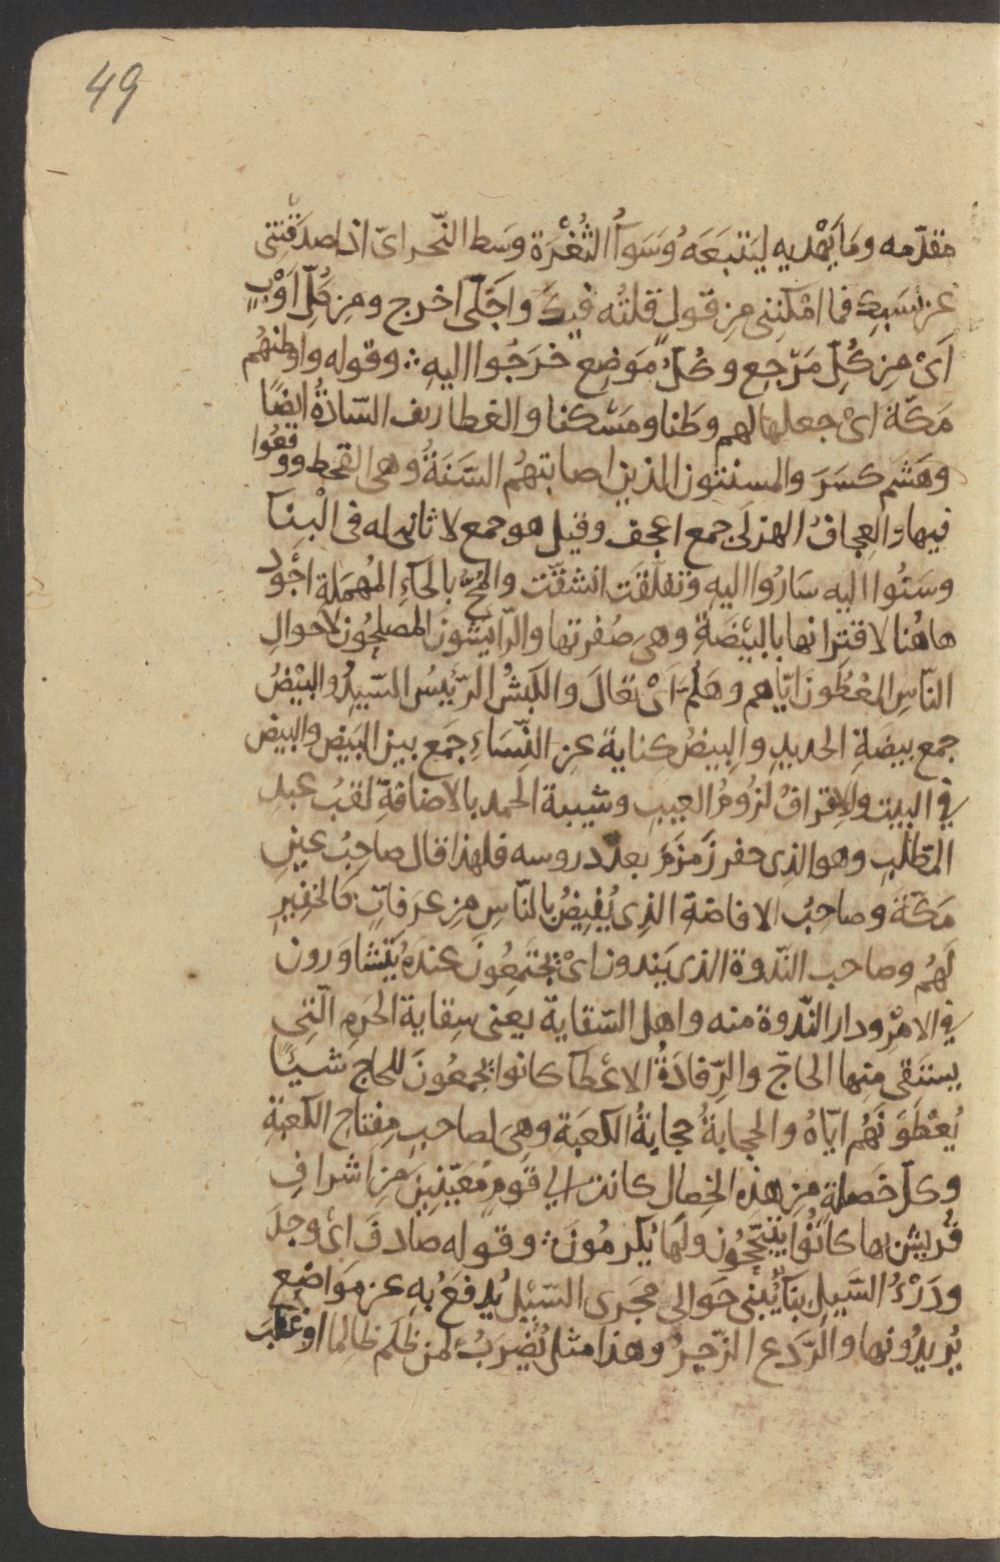 49
مقدّمه وما يَهْديه ليَتبَعَهُ وَسَوآءُ الثُغْرَة وسَط النّحر اىْ اذا صدَقتَنى
عن نسَبِكَ فما امْكنَنى مِن قَولٍ قلتُه فيكَ واجَلَى اخرج ومِن كُلِّ اَوْبٍ
اَىْ مِن كُلِّ مَرْجِع وكُلِّ مَوضِع خرَجُوا اليهِ ∴ وقوله واوطنهُم
مَكّة اىْ جعلها لهم وطَنا ومَسْكنا والغطاريف السّادةُ ايضًا
وهَشَم كسَرَ والمسنتون الذين اصابتهُم السَّنَةُ وهى القحط ووقعُوا
فيها والعِجافُ الهزلَى جمع اعجف وقيل هو جمع لا ثانى له فى الْبِنآ
وسَنُوا اليه سَارُوا اليهِ وتفلّقَت انشقّت والمُحّ بالحَاءِ المُهمَلةِ اجْوَد
هاهُنا لاقتِرانها بالبَيْضَةِ وهى صُفرتها والرّايشُونَ المصلِحُون لاحوالِ
النّاسِ المعْطُونَ ايّاهم وهَلمّ اَىْ تعَالَ والكَبشُ الرّئيسُ السّيِدُ والبَيْضُ
جمع بيضَةِ الحديدِ والبِيضُ كناية عنِ النِّسَاءِ جمَع بين البَيض والبِيض
فى البيت والاِقرافُ لزُومُ العيبِ وشيبة الحَمد بالاضافةِ لقبُ عبدِ
المطّلبِ وهو الذِى حفر زَمزَمَ بعدَ دروسه فلهذا قال صاحِبُ عينِ
مَكّةَ وصاحِبُ الافاضةِ الذِى يُفِيضُ بالنّاسِ مِن عرَفاتٍ كالخفِيرِ
لَهُم وصاحب النّدوة الذى يَندون اىْ يجتَمِعُونَ عندَهُ يَتشاوَرون
فى الامْرِ ودار النّدوة منه واهل السّقاية يعنى سِقاية الحَرمِ الّتِى
يستَقى مِنها الحاجّ والرِّفادَةُ الاعْطآ كانوا يجمعُونَ للحاج شَيئًا
يُعْطَوَنَهُم ايّاهُ والحجابةُ حجابةُ الكَعبَةِ وهِىَ لصاحبِ مِفتاحِ الكَعبةِ
وكلّ خَصلةٍ مِن هذِه الخِصال كانت الى قَومٍ مُعيّنِينَ مِن اشرافِ
قُريشٍ بها كانُوا يتبَجّحُون ولَها يُكرمُونَ ∴ وقوله صادفَ اىْ وجدَ
ودَرْءُ السَّيلِ بنآ يُبْنى حَوالى مجَرى السّيْل يُدفَعُ بهِ عن مَواضِع
يُريدُونها والرّدع الزّجرُ وهذا مثل يُضرَبُ لمن ظلَم ظالِما اوْ غلَبَ